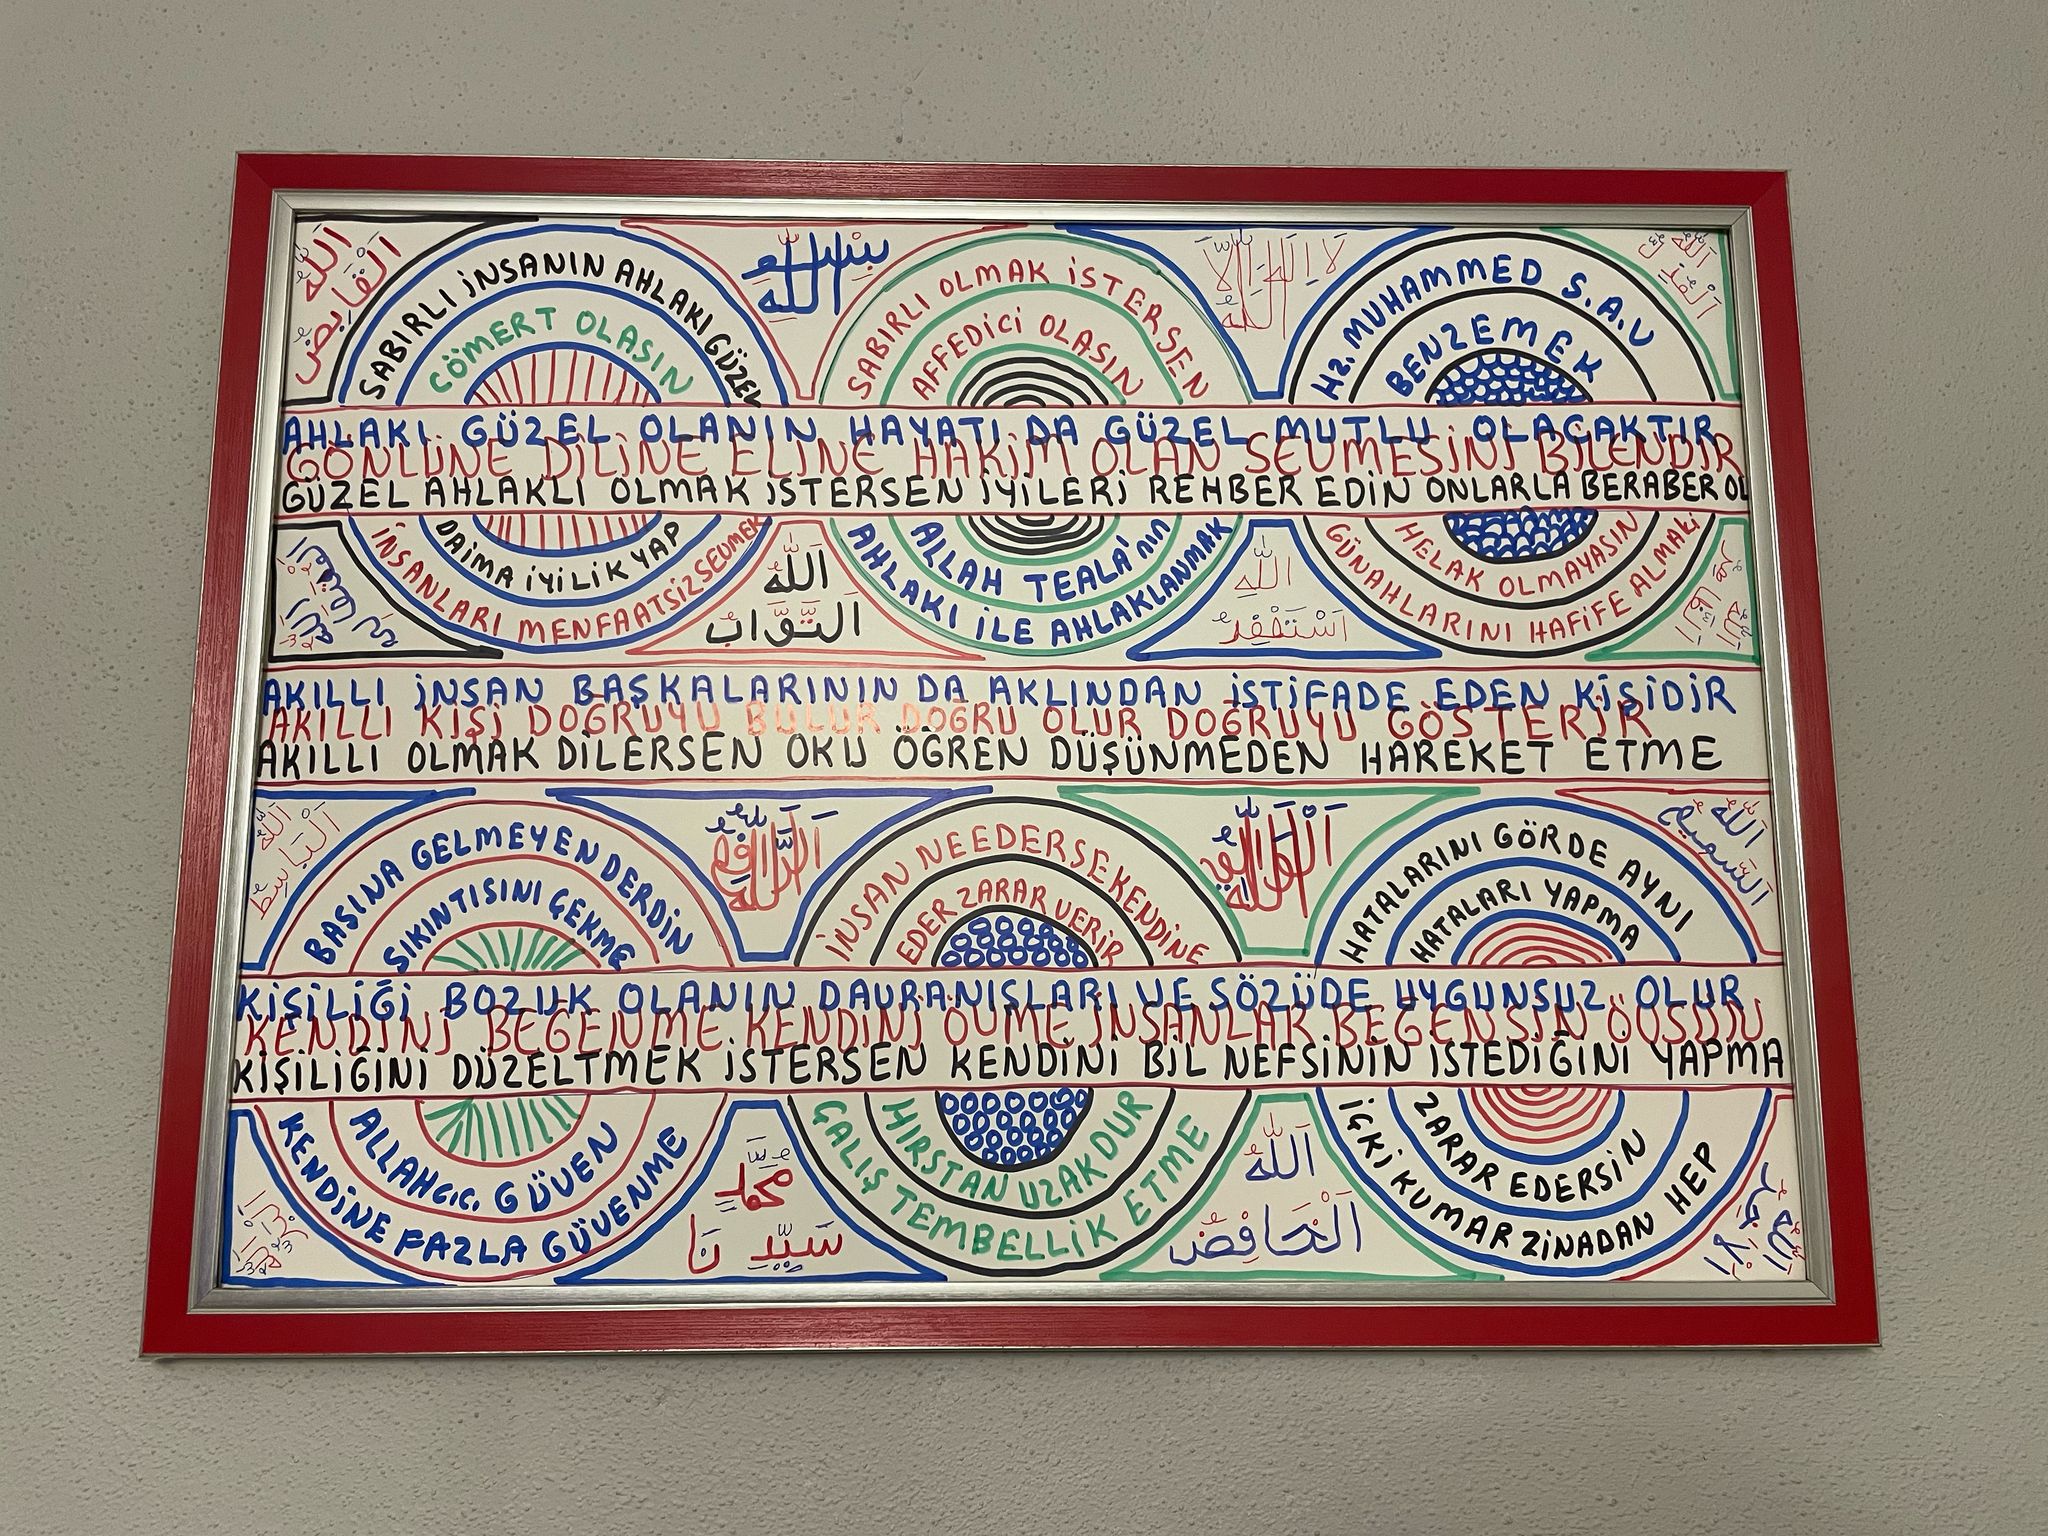 اَللّٰهُ اَلْقَابِضُ
SABIRLI İNSANIN AHLAKI GÜZEL
CÖMERT OLASIN
بِسْمِ اللّٰهِ
SABIRLI OLMAK İSTERSEN
AFFEDİCİ OLASIN
لَا اِلٰهَ اِلَّا اللّٰهُ
HZ. MUHAMMED S.A.V
BENZEMEK
اَللّٰهُ
AHLAKI GÜZEL OLANIN HAYATI DA GÜZEL MUTLU OLACAKTIR
GÖNLÜNE DİLİNE ELİNE HAKİM OLAN SEVMESİNİ BİLENDİR
GÜZEL AHLAKLI OLMAK İSTERSEN İYİLERİ REHBER EDİN ONLARLA BERABER OL
DAİMA İYİLİK YAP
İNSANLARI MENFAATSİZ SEVMEK
اَللّٰهُ
اَلتَّوَّابُ
ALLAH TEALA'nın
AHLAKI İLE AHLAKLANMAK
اَللّٰهِ
اَسْتَغْفِرُ
HELAK OLMAYASIN
GÜNAHLARINI HAFİFE ALMAKİ
AKILLI İNSAN BAŞKALARININ DA AKLINDAN İSTİFADE EDEN KİŞİDİR
AKILLI KİŞİ DOĞRUYU BULUR DOĞRU OLUR DOĞRUYU GÖSTERİR
AKILLI OLMAK DİLERSEN OKU ÖĞREN DÜŞÜNMEDEN HAREKET ETME
اَللّٰهُ اَلْبَاسِطُ
BASINA GELMEYEN DERDİN
SIKINTISINI ÇEKME
İNSAN NE EDERSE KENDİNE
EDER ZARAR VERİR
HATALARINI GÖRDE AYNI
HATALARI YAPMA
اَللّٰهُ
اَلسَّمِيعُ
KİŞİLİĞİ BOZUK OLANIN DAVRANIŞLARI VE SÖZÜDE UYGUNSUZ OLUR
KENDİNİ BEĞENME KENDİNİ ÖVME İNSANLAR BEĞENSİN ÖVSÜN
KİŞİLİĞİNİ DÜZELTMEK İSTERSEN KENDİNİ BİL NEFSİNİN İSTEDİĞİNİ YAPMA
ALLAH C.C. GÜVEN
KENDİNE FAZLA GÜVENME
مُحَمَّد
سَيِّدِنَا
HIRSTAN UZAK DUR
ÇALIŞ TEMBELLİK ETME
اَللّٰهُ
ZARAR EDERSİN
İÇKİ KUMAR ZİNADAN HEP